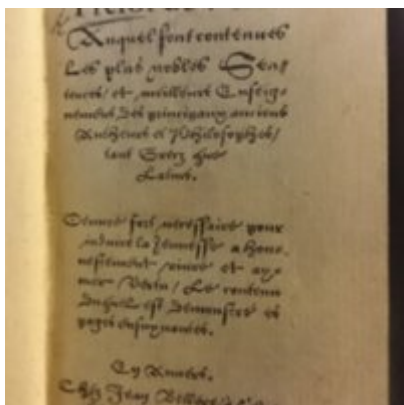 Auquel sont contenues
Les plus nobles Sen-
tences/ et meilleurs Enseig-
nemens des principaux anciens
Autheurs et Philosophes/
tant Grecz que
Latins.
Oeuvre fort necessaire pour
induire la Jeunesse a hon-
nestement vivre et ay-
mer Vertu/ Le contenu
duquel est demonstré es
pages ensuyvantes.
En Anvers.
Chez Jean Bellere